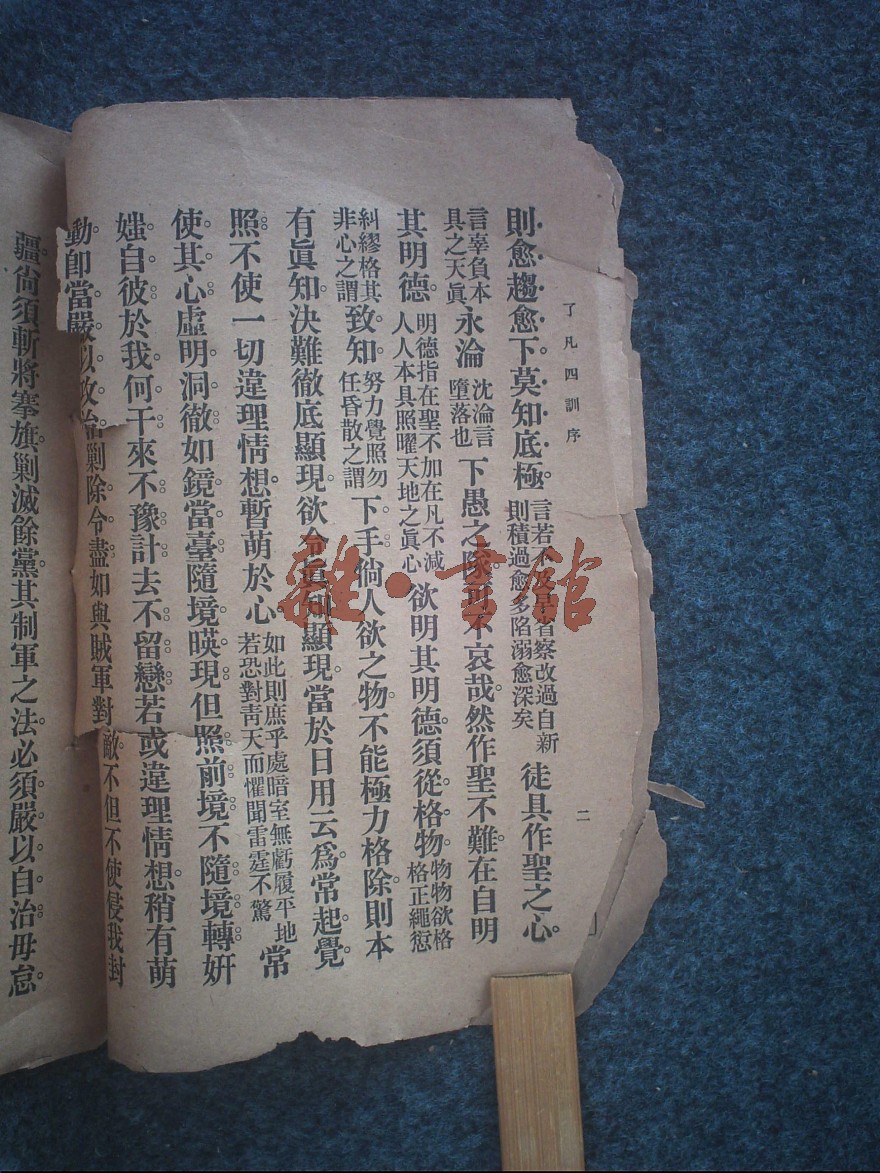 了凡四訓序
二
則愈趨愈下莫知底極言若不及早省察改過自新則積過愈多陷溺愈深矣徒具作聖之心
言辜負本具之天眞永淪沈淪言墮落也下愚之隊可不哀哉然作聖不難在自明
其明德明德指在聖不加在凡不減人人本具照曜天地之眞心欲明其明德須從格物物物欲格格正繩愆
糾繆格其非心之謂致知努力覺照勿任昏散之謂下手倘人欲之物不能極力格除則本
有眞知決難徹底顯現欲令眞知顯現當於日用云爲常起覺
照不使一切違理情想暫萌於心如此則庶乎處暗室無虧履平地若恐對靑天而懼聞雷霆不驚常
使其心虛明洞徹如鏡當臺隨境暎現但照前境不隨境轉妍
媸自彼於我何干來不豫計去不留戀若或違理情想稍有萌
動卽當嚴以攻治剿除令盡如與賊軍對敵不但不使侵我封
疆尙須斬將搴旗剿滅餘黨其制軍之法必須嚴以自治毋怠
雜·書館